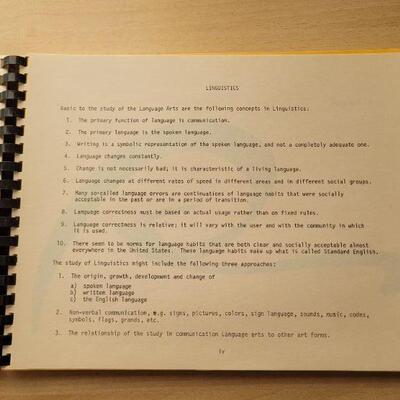 LINGUISTICS
Basic to the study of the Language Arts are the following concepts in Linguistics:
1. The primary function of language is communication.
2. The primary language is the spoken language.
3. Writing is a symbolic representation of the spoken language, and not a completely adequate one.
4. Language changes constantly.
5. Change is not necessarily bad; it is characteristic of a living language.
6. Language changes at different rates of speed in different areas and in different social groups.
7. Many so-called language errors are continuations of language habits that were socially
acceptable in the past or are in a period of transition.
8. Language correctness must be based on actual usage rather than on fixed rules.
9. Language correctness is relative; it will vary with the user and with the community in which
it is used.
10. There seem to be norms for language habits that are both clear and socially acceptable almost
everywhere in the United States. These language habits make up what is called Standard English.
The study of Linguistics might include the following three approaches:
1. The origin, growth, development and change of
a) spoken language
b) written language
c) the English language
2. Non-verbal communication, e.g. signs, pictures, colors, sign language, sounds, music, codes,
symbols, flags, etc.
3. The relationship of the study in communication Language arts to other art forms.
iv